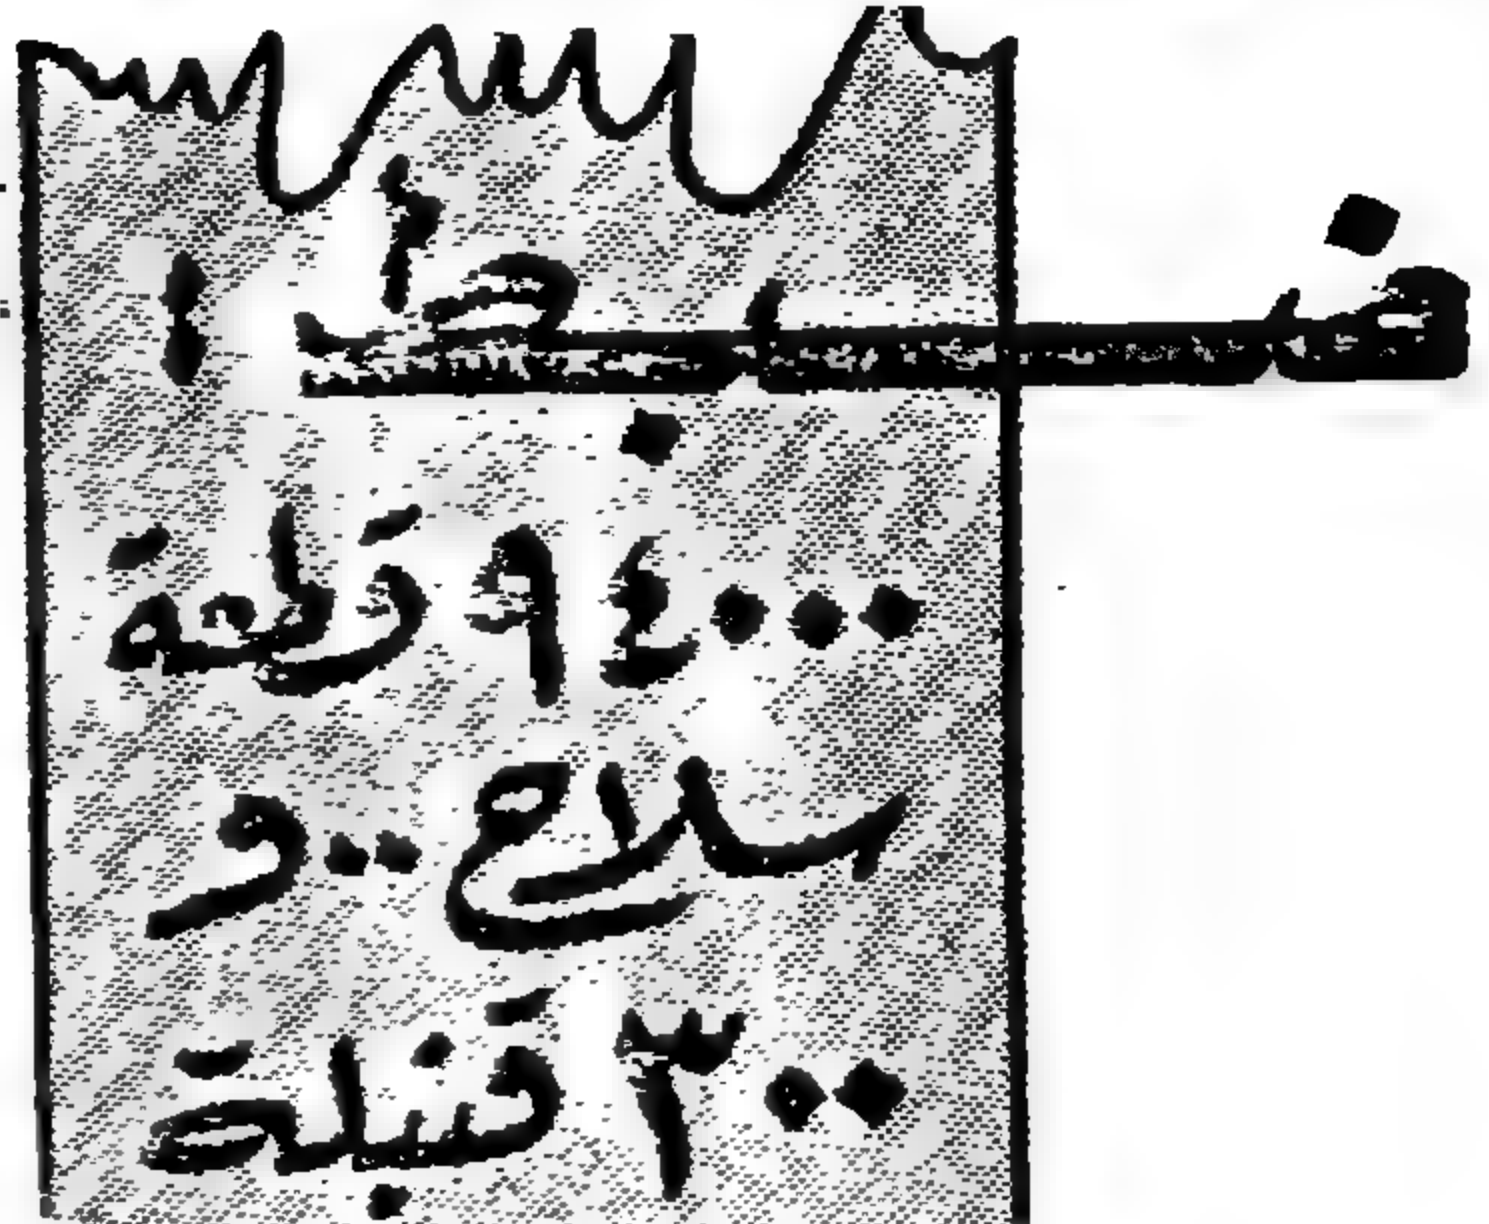 ٩٤٠٠٠ قطعة
سلاح.. و
٣٠٠ قنبلة